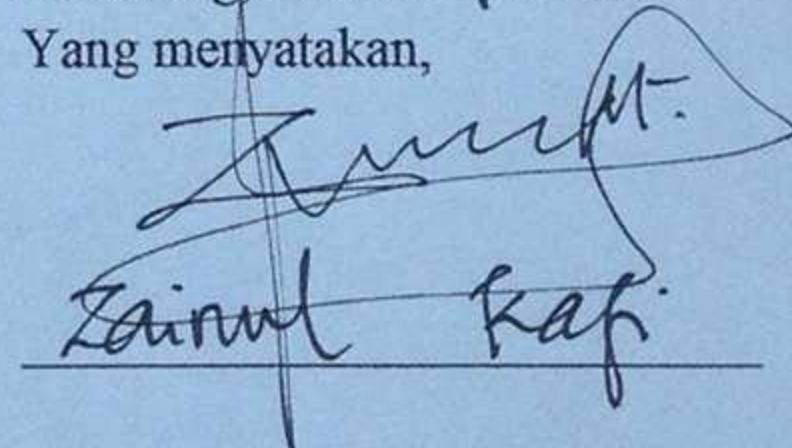 Yang menyatakan,
Zainul Kafi